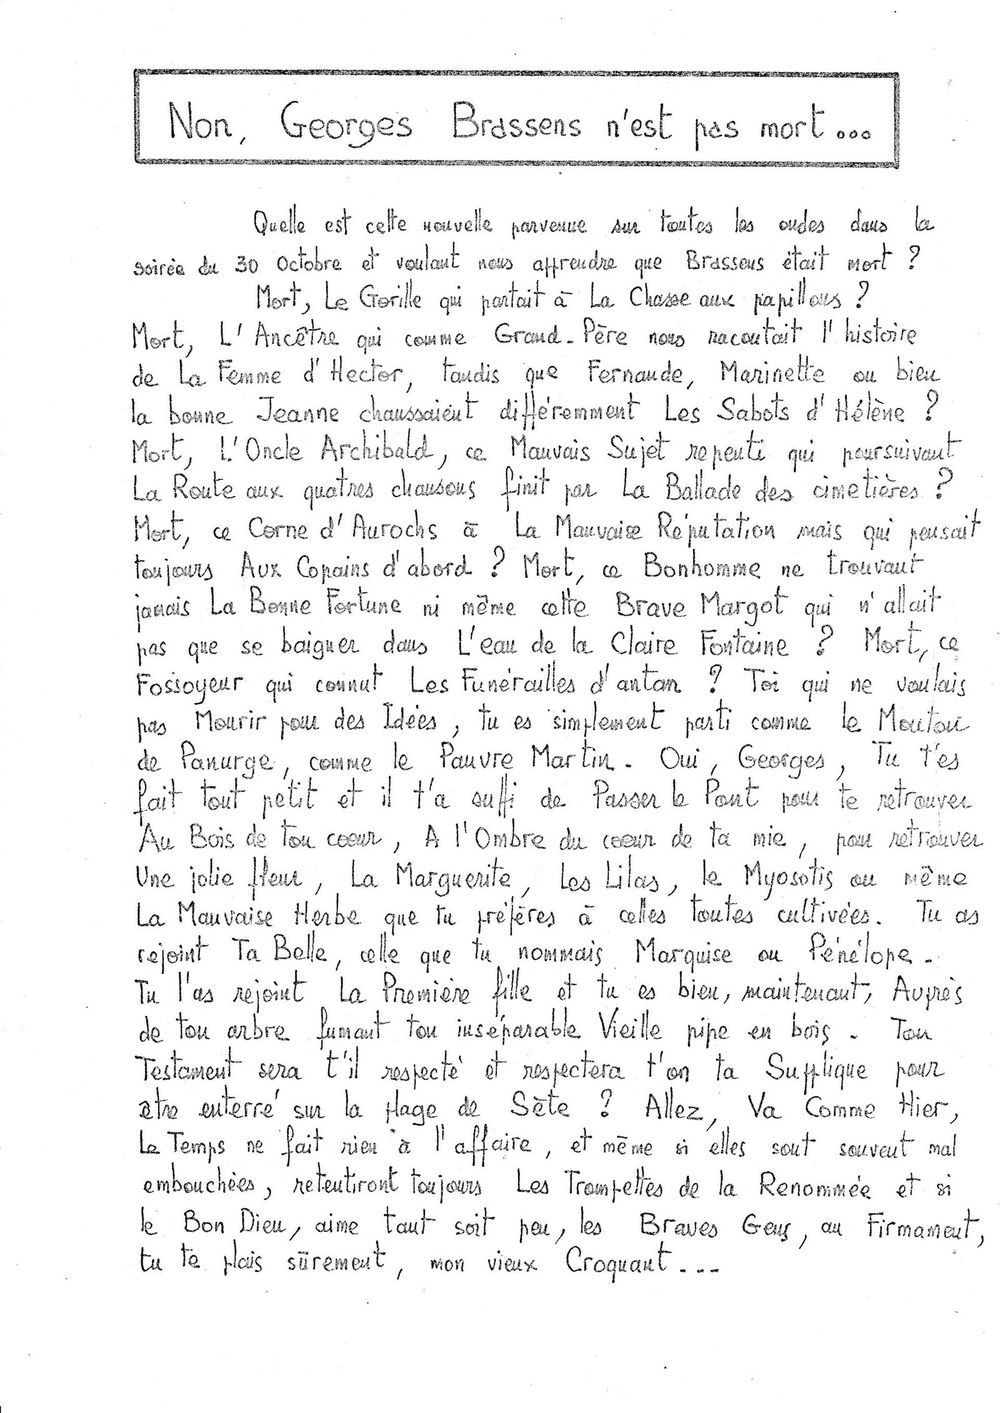 Non, Georges Brassens n'est pas mort...
Quelle est cette nouvelle parvenue sur toutes les ondes dans la
soirée du 30 Octobre et voulant nous apprendre que Brassens était mort ?
Mort, Le Gorille qui partait à La Chasse aux papillons ?
Mort, L'Ancêtre qui comme Grand-Père nous racontait l'histoire
de La Femme d'Hector, tandis que Fernande, Marinette ou bien
la bonne Jeanne chaussaient différemment Les Sabots d'Hélène ?
Mort, L'Oncle Archibald, ce Mauvais Sujet repenti qui poursuivant
La Route aux quatres chansons finit par La Ballade des cimetières ?
Mort, ce Corne d'Aurochs à La Mauvaise Réputation mais qui pensait
toujours Aux Copains d'abord ? Mort, ce Bonhomme ne trouvant
jamais La Bonne Fortune ni même cette Brave Margot qui n'allait
pas que se baigner dans L'eau de la Claire Fontaine ? Mort, ce
Fossoyeur qui connut Les Funérailles d'antan ? Toi qui ne voulais
pas Mourir pour des Idées, tu es simplement parti comme le Mouton
de Panurge, comme le Pauvre Martin. Oui, Georges, Tu t'es
fait tout petit et il t'a suffi de Passer le Pont pour te retrouver
Au Bois de ton coeur, A l'Ombre du coeur de ta mie, pour retrouver
Une jolie fleur, La Marguerite, Les Lilas, le Myosotis ou même
La Mauvaise Herbe que tu préfères à celles toutes cultivées. Tu as
rejoint Ta Belle, celle que tu nommais Marquise ou Pénélope.
Tu l'as rejoint La Première fille et tu es bien, maintenant, Auprès
de ton arbre fumant ton inséparable Vieille pipe en bois. Ton
Testament sera t'il respecté et respectera t'on ta Supplique pour
être enterré sur la plage de Sète ? Allez, Va Comme Hier,
Le Temps ne fait rien à l'affaire, et même si elles sont souvent mal
embouchées, retentiront toujours Les Trompettes de la Renommée et si
le Bon Dieu, aime tant soit peu, les Braves Gens, au Firmament,
tu te plais sûrement, mon vieux Croquant...